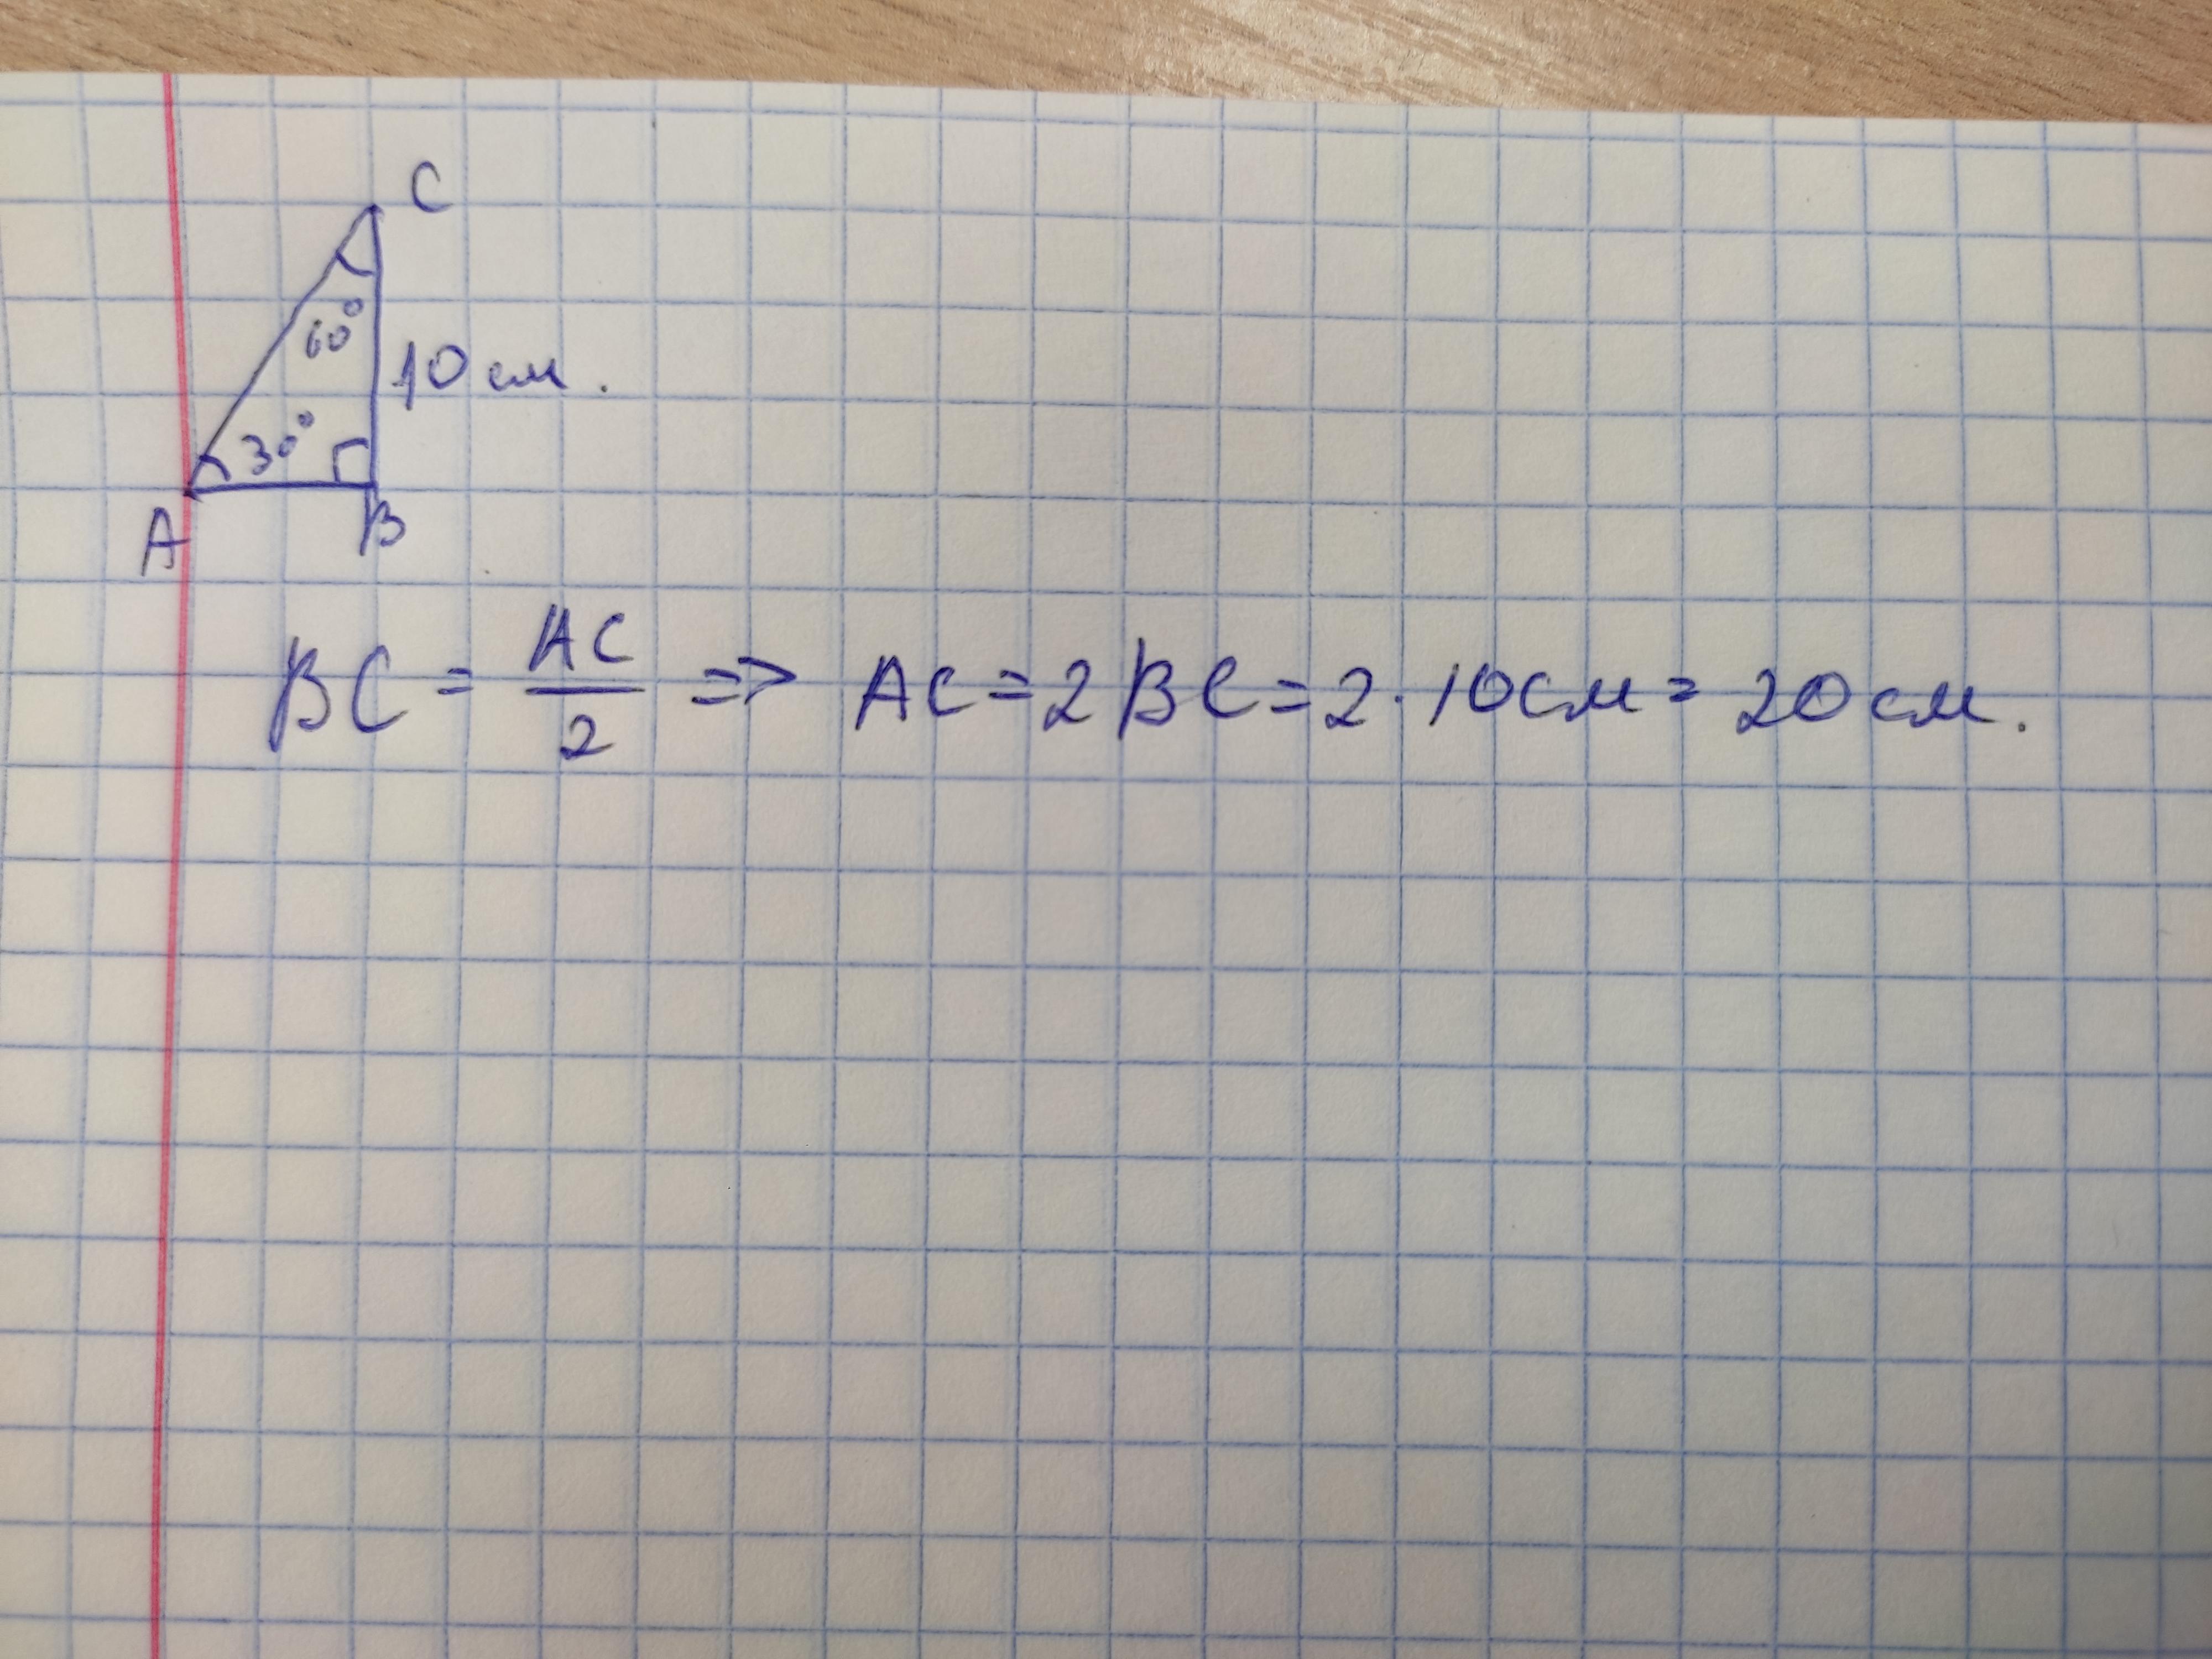 C
60°
10 см.
30°
A
B
BC = AC/2 => AC = 2BC = 2 · 10 см = 20 см.